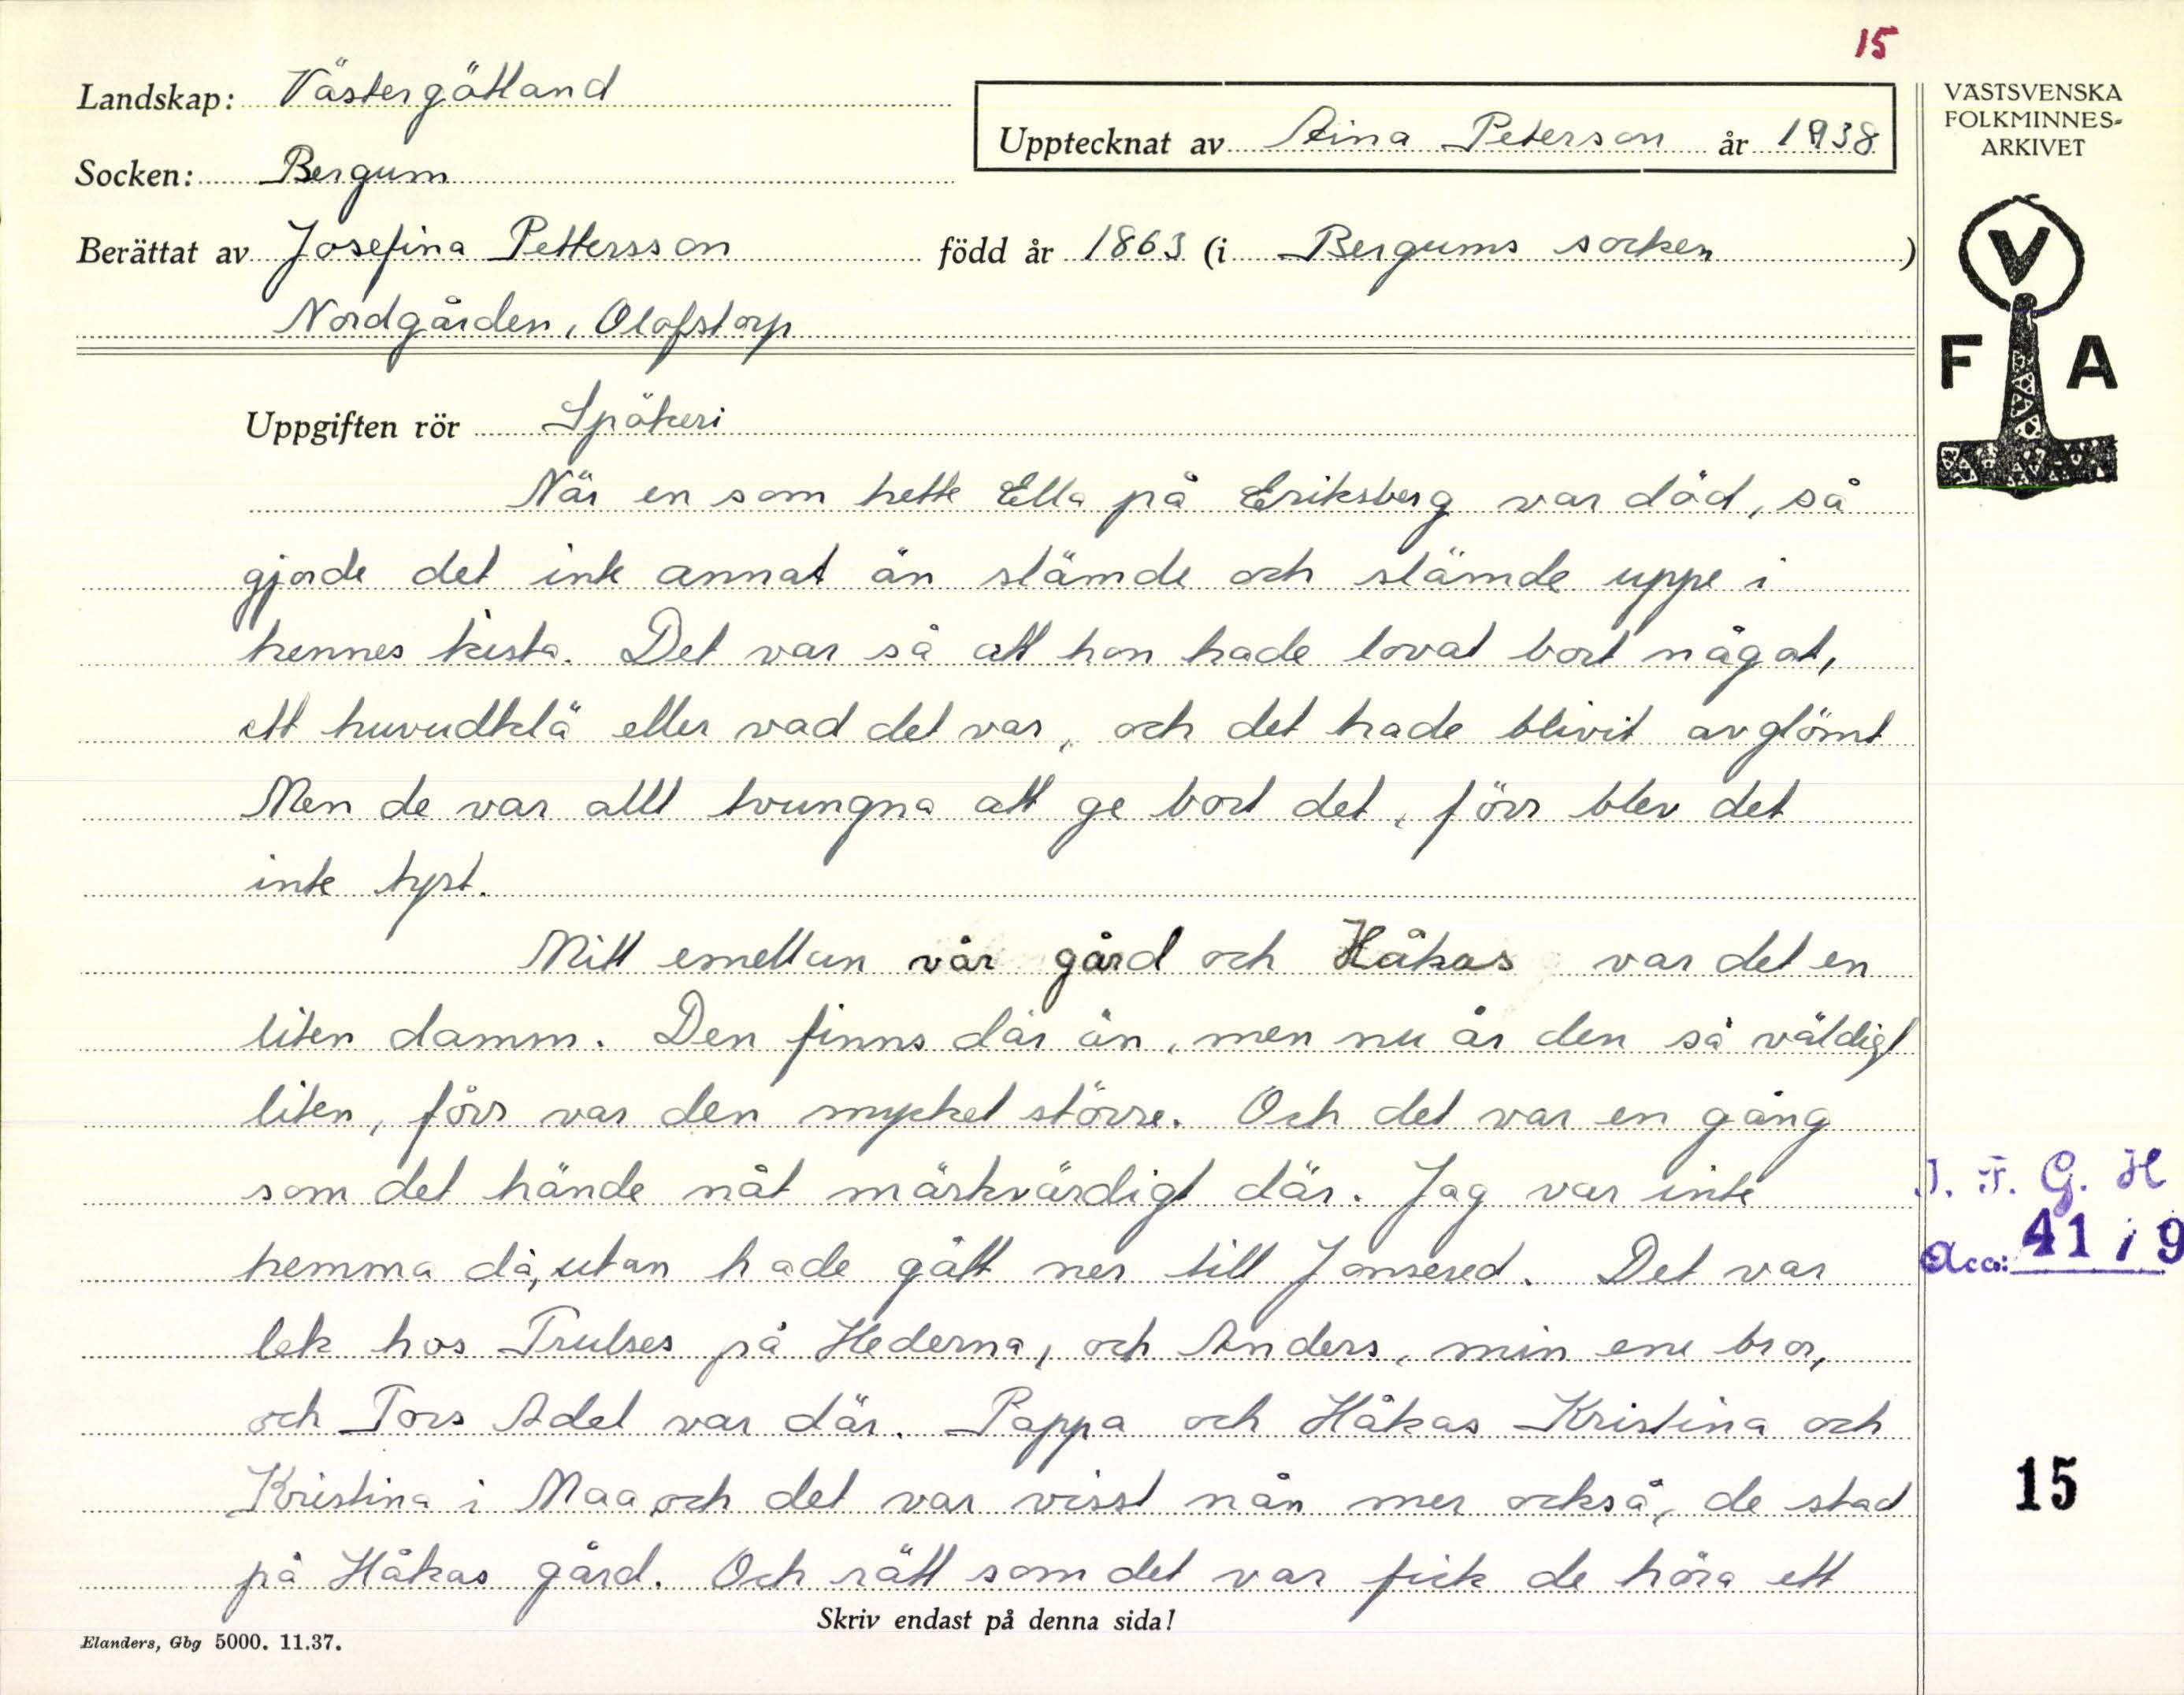 15
Landskap: Västergötland
Upptecknat av Aina Peterson år 1938
VÄSTSVENSKA
FOLKMINNES-
ARKIVET
Socken: Bergum
Berättat av Josefina Pettersson född år 1863 (i Bergums socken)
Nordgården, Olofstorp
V
F A
Uppgiften rör Spökeri
När en som hette Ella på Eriksberg var död, så
gjorde det inte annat än slämde och slämde uppe i
hennes kista. Det var så att hon hade lovat bort något,
ett huvudklä eller vad det var, och det hade blivit avglömt
Men de var allt tvungna att ge bort det, förr blev det
inte tyst.
Mitt emellan vår gård och Håkas var det en
liten damm. Den finns där än, men nu är den så väldigt
liten, förr var den mycket större. Och det var en gång
som det hände nåt märkvärdigt där. Jag var inte
hemma då, utan hade gått ner till Jonsered. Det var
lek hos Trulses på Hederna, och Anders, min ene bror,
och Tors Adel var där. Pappa och Håkas Kristina och
Kristina i Maa och det var visst nån mer också, de stod
på Håkas gård. Och rätt som det var fick de höra ett
I. F. G. H
Acc: 41 / 9
15
Skriv endast på denna sida!
Elanders, Gbg 5000. 11.37.